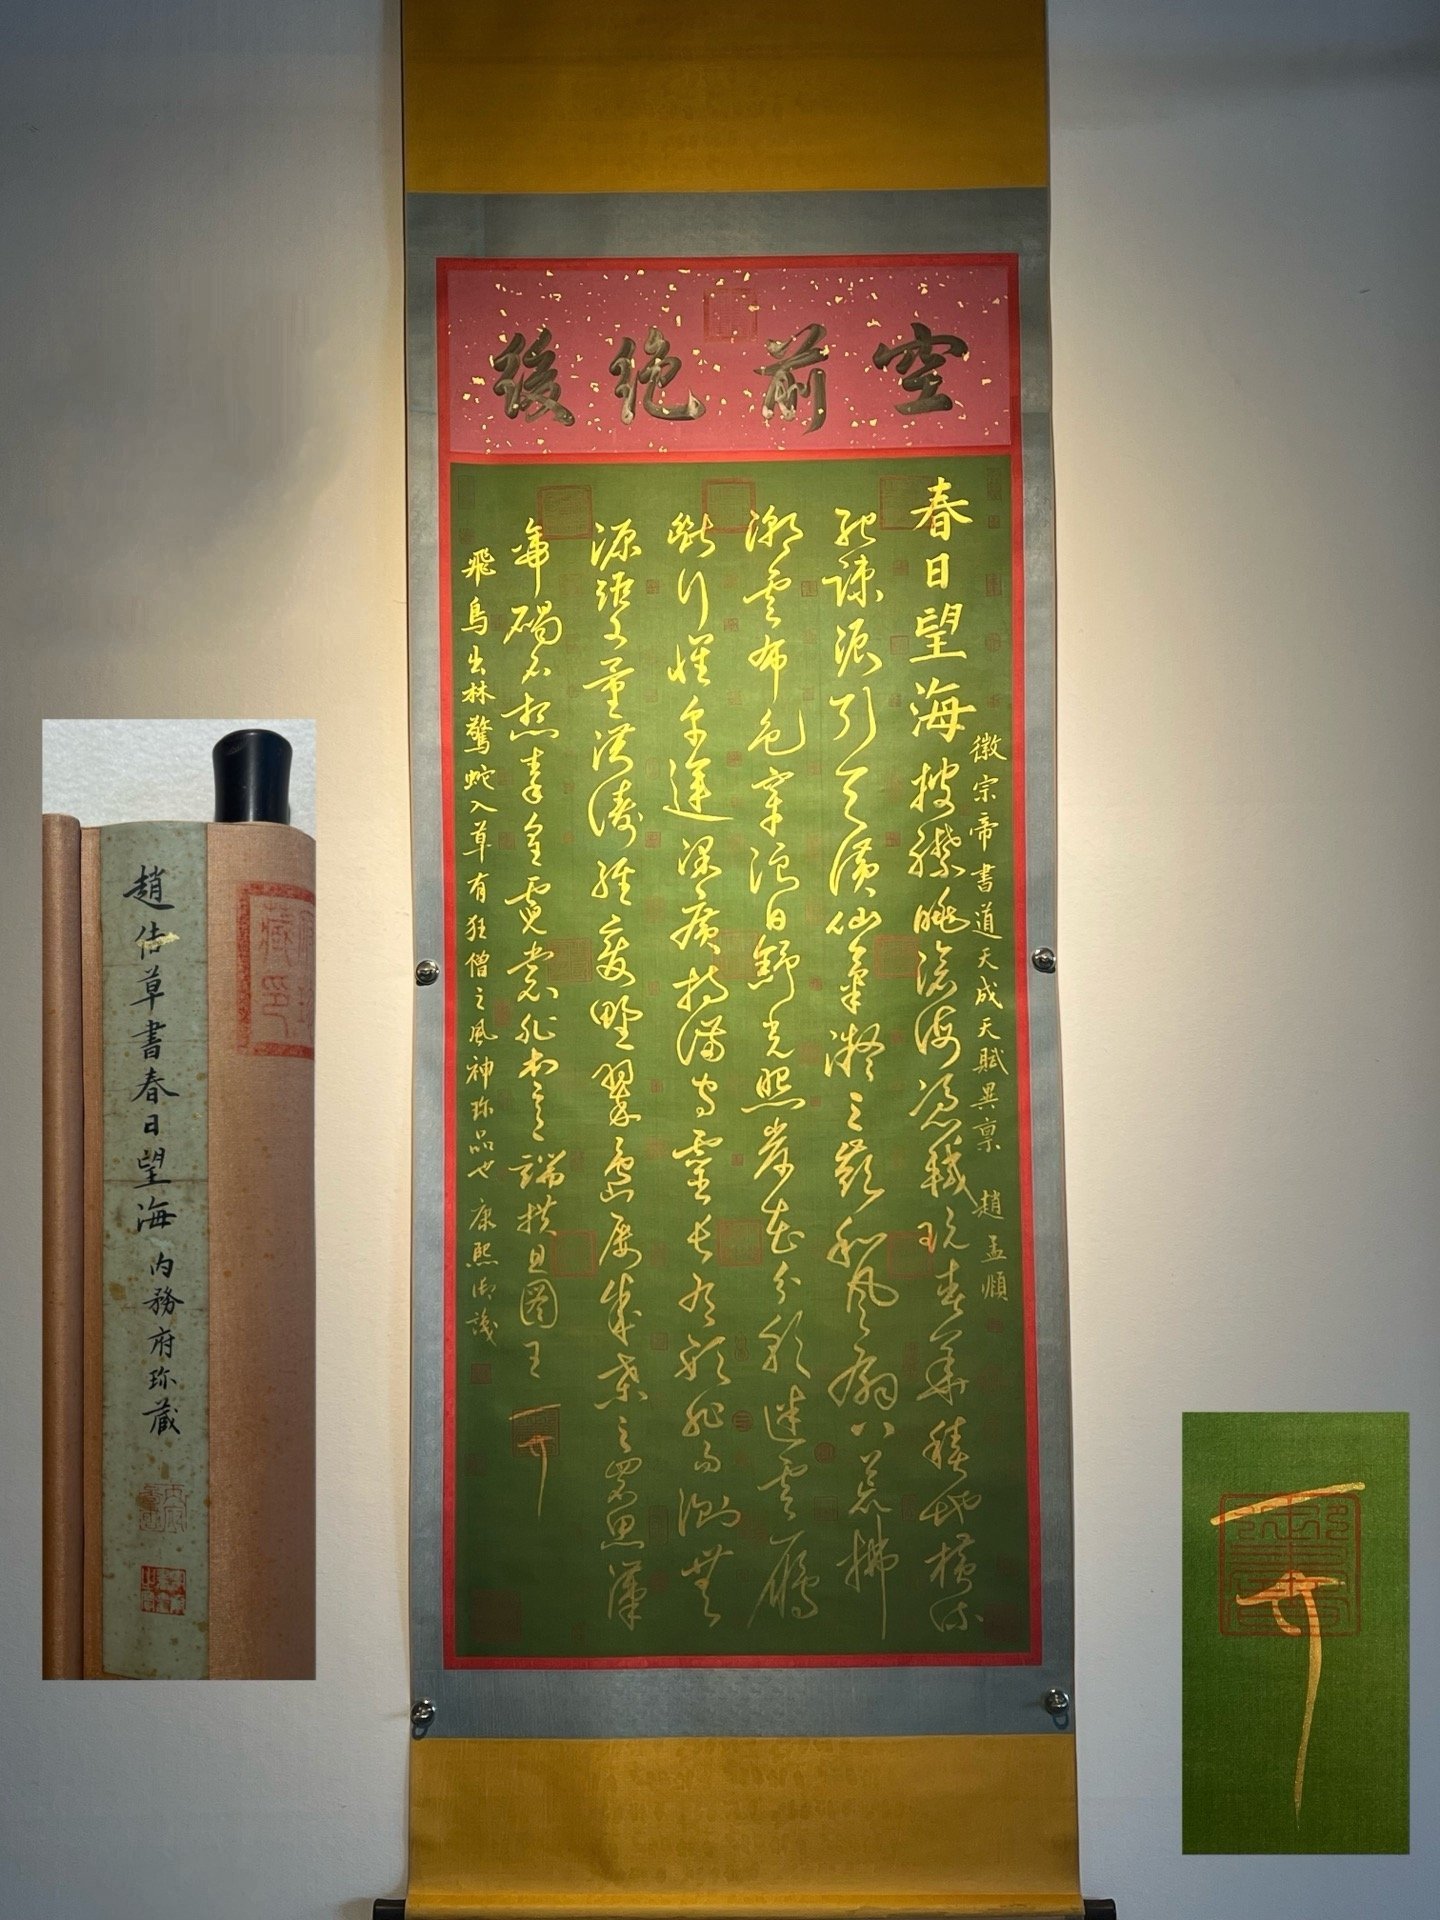 空前絕後
徽宗帝書道天成天賦異稟 趙孟頫
春日望海披襟眺滄海憑軾玩春芳積地橫流
紀疎派引天潢仙氣凝三嶺和風扇八荒拂
潮雲布色穿浪日舒光照岸花分彩迷雲雁
斷行懷卑運深廣持滿守靈長有形非易測無
源詎可量洪濤經變野翠島屢成桑之罘思漢
帝碣石想秦皇霓裳非本意端拱且圖王
飛鳥出林驚蛇入草有狂僧之風神珎品也 康熙御識
趙佶草書春日望海 內務府珎藏